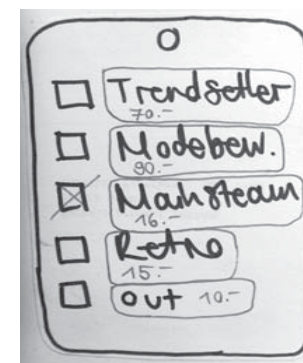 Trendsetter
70.-
Modebew.
90.-
Mainsteam
16.-
Retro
15.-
out 10.-